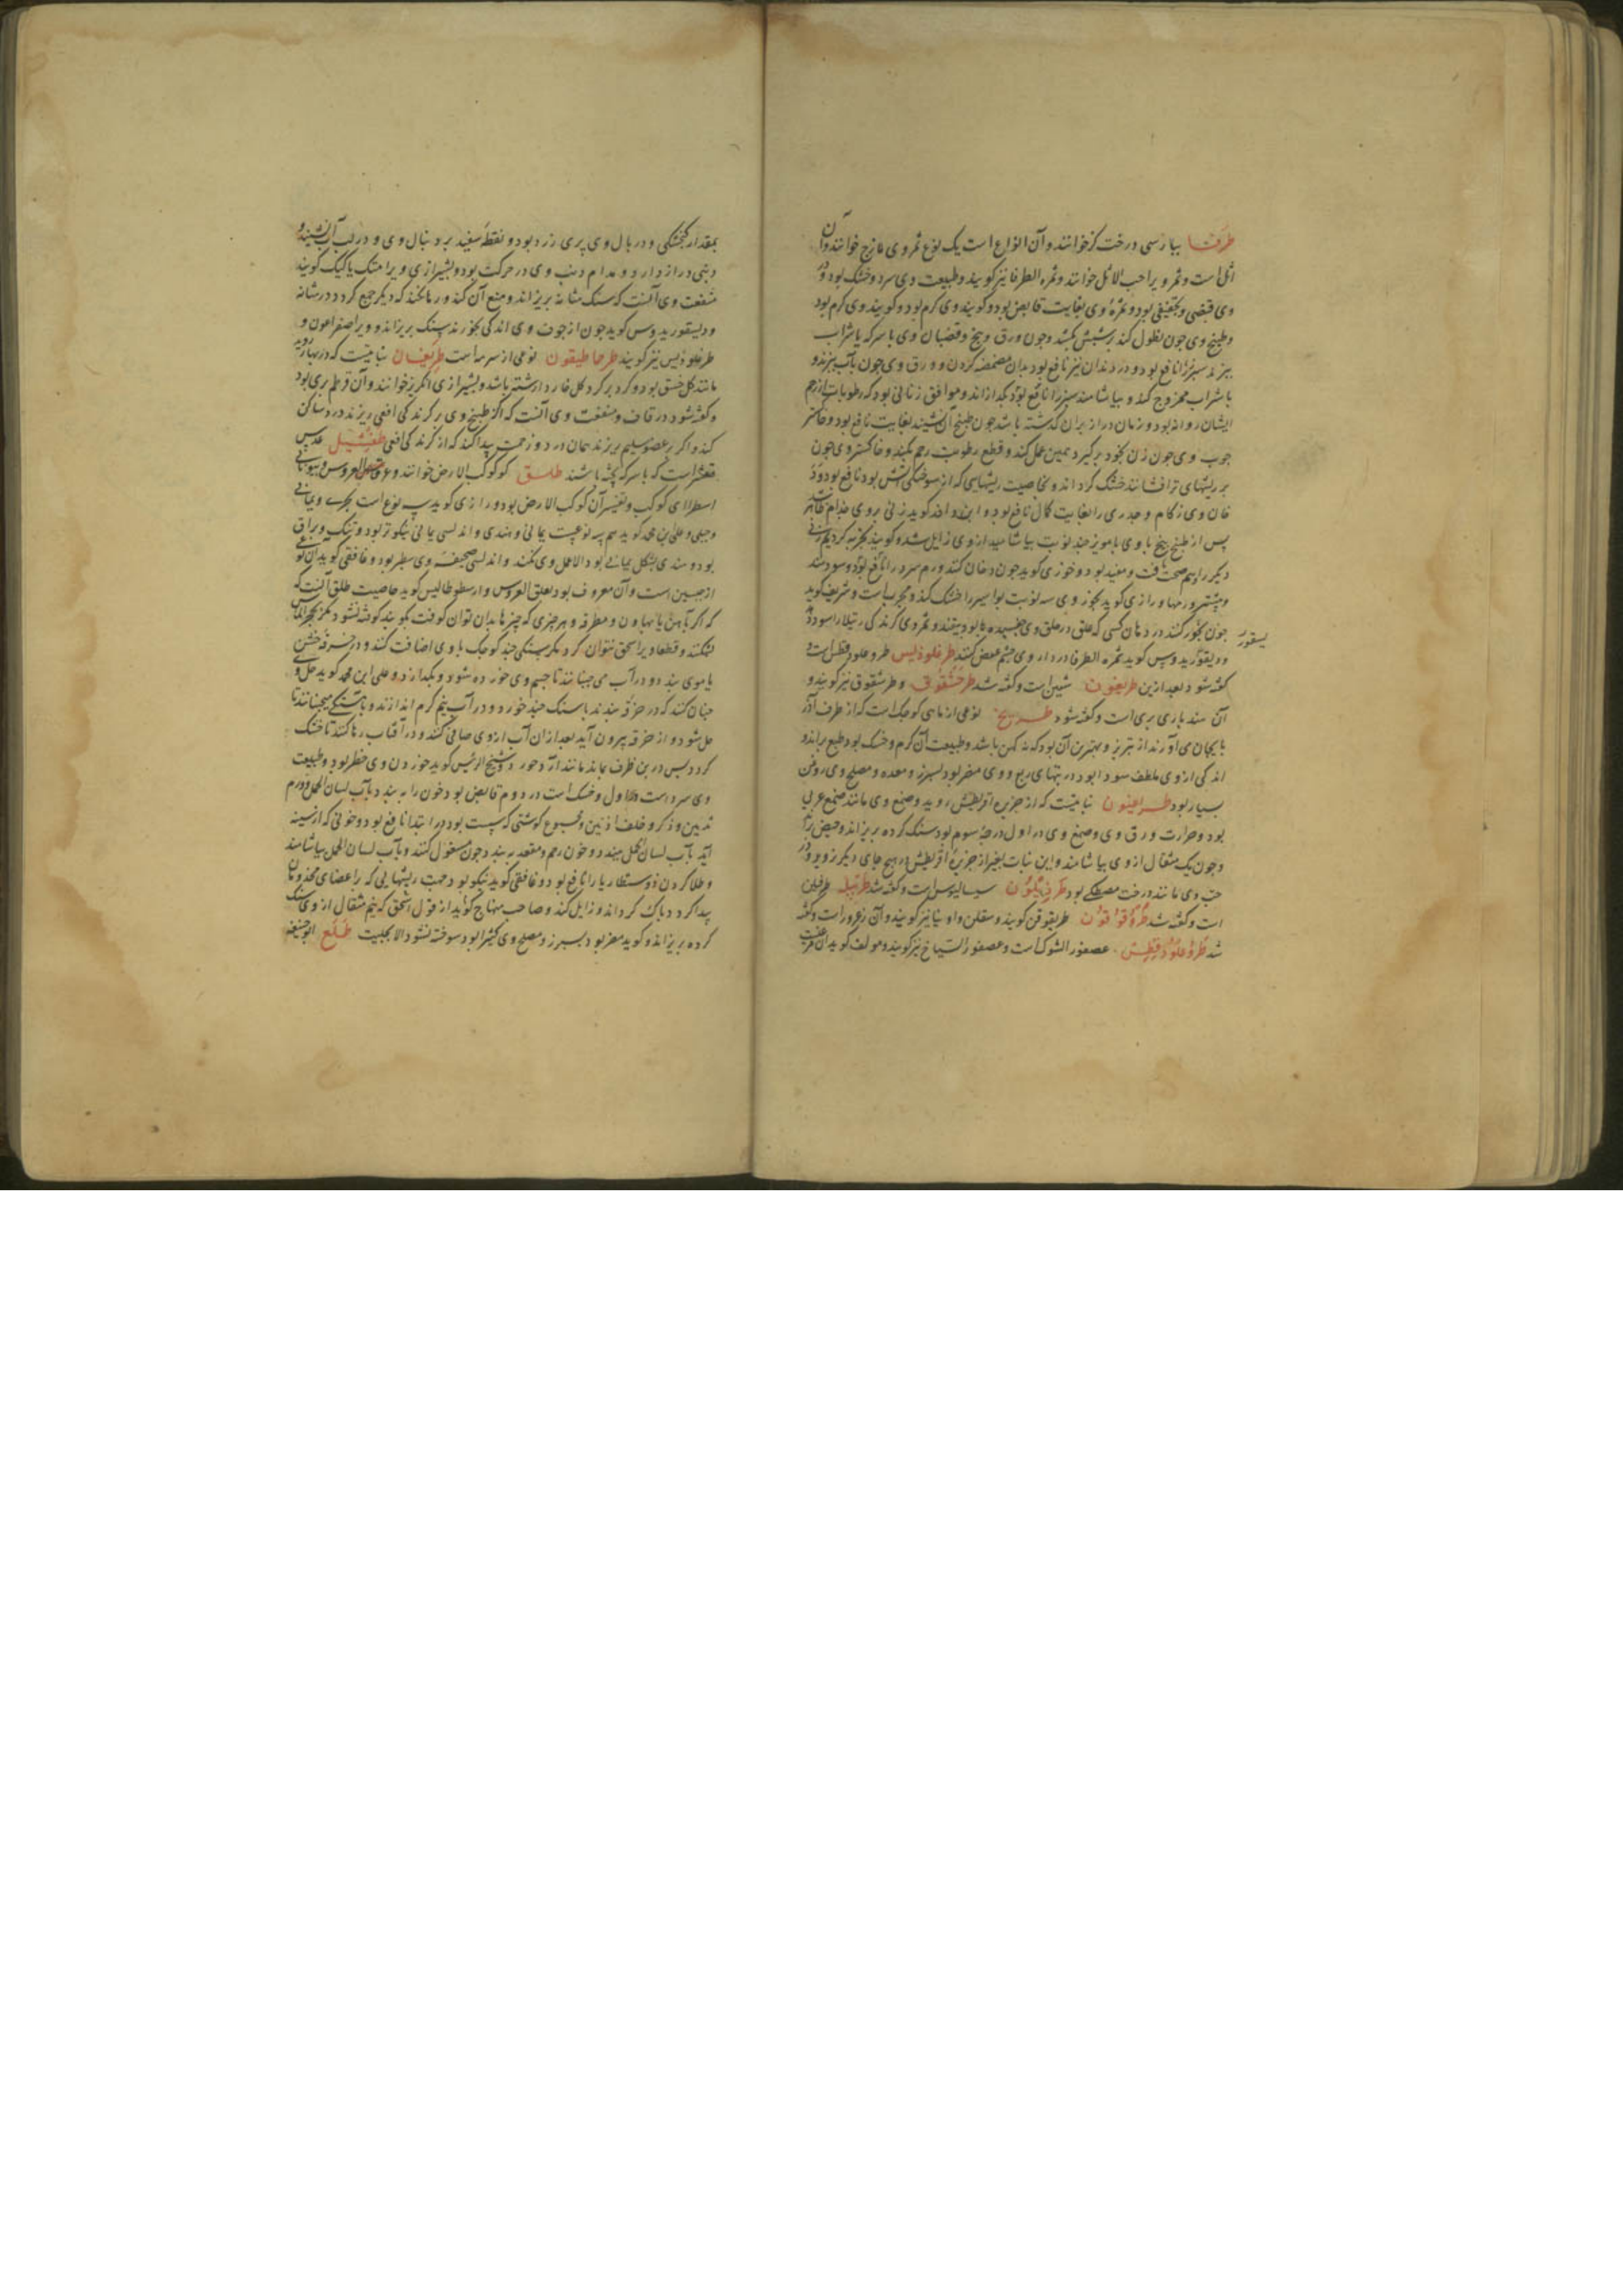 طرفا بپارسی درخت کز خوانند و آن انواع است یک نوع ثمر وی مازج خوانند و آن
اثل است و ثمر ویرا حب الاثل خوانند و ثمره الطرفا نیز کویند و طبیعت وی سرد و خشک بود و در
وی قبضی و تجفیفی بود و ثمرهٔ وی بغایت قابض بود و کویند وی کرم بود و کویند وی کرم بود
و طبیخ وی چون نطول کنند بر سپش بکشد و چون ورق و بیخ و قضبان وی با سرکه یا شراب
بپزند سپرز را نافع بود و درد دندان نیز نافع بود بدان مضمضه کردن و ورق وی چون بآب بپزند و
با شراب ممزوج کنند و بیاشامند سپرز را نافع بود بکدازاند و موافق زنانی بود که رطوبات از رحم
ایشان روانه بود و زمان دراز بران کذشته باشد چون در طبیخ آن نشینند بغایت نافع بود و خاکستر
چوب وی چون زن بخود برکیرد همین عمل کند و قطع رطوبت رحم بکند و خاکستر وی چون
بر ریشهای تر افشانند خشک کرداند و بخاصیت ریشهایی که از سوختکی آتش بود نافع بود و دود
خان وی زکام و جدری را بغایت کمال نافع بود و ابن وافد کوید زنی بروی جذام ظاهر شد
پس از طبیخ بیخ با وی با مویز چند نوبت بیاشامید از وی زایل شد و کویند تجربه کردیم زنی
دیکر را و هم صحت یافت و مفید بود و خوزی کوید چون دخان کنند ورم سرد را نافع بود و سودمند
و بیشتر ورمها و رازی کوید بخور وی سه نوبت بواسیر را خشک کند و مجرب است و شریف کوید
چون بخور کنند در دهان کسی که علق در حلق وی چسپیده بود بیفتد و ثمر وی کزندکی رتیلا را سود دارد
یسقور
و دیسقوریدوس کوید ثمره الطرفا در داروی چشم عوض کنند طرغلودیس طروغلودقطس است و
کفته شود بعد ازین طریفون شبین است و کفته شد طرخشقوق و طرشقوق نیز کویند و
آن هندبای بری است و کفته شود طریخ نوعی از ماهی کوچک است که از طرف آذر
بایجان می آورند از تبریز و بهترین آن بود که نه کهن باشد و طبیعت آن کرم و خشک بود طبع براند و
اندکی از وی ملطف سودا بود در تبهای ربع و وی مضر بود بسپرز و معده و مصلح وی روغن
بسیار بود طراغیون نباتیست که از جزیره اقریطش روید و صمغ وی مانند صمغ عربی
بود و حرارت ورق وی و صمغ وی در اول درجهٔ سوم بود سنک کرده بریزاند و حیض براند
و چون یک مثقال از وی بیاشامند و این نبات بغیر از جزیرهٔ اقریطش در هیچ جای دیکر نروید و در
حب وی مانند درخت مصطکی بود طردیلون سیسالیوس است و کفته شد
است و کفته شد طریقوفن کویند و سفلن و اونیا نیز کویند و آن زعرور است و کفته
شد طروغلودقطس عصفور الشوک است و عصفور السیاخ نیز کویند و مولف کوید آن مرغیست
بمقدار کنجشکی و در بال وی پری زرد بود و نقطهٔ سفید بر دنبال وی و در لب آب نشیند و
دنبی دراز دارد و مدام دنب وی در حرکت بود و بشیرازی ویرا کویند
منفعت وی آنست که سنک مثانه بریزاند و منع آن کند و رها نکند که دیکر جمع کردد در مثانه
و دیسقوریدوس کوید چون از جوف وی اندکی بخورند سنک بریزاند و ویرا صفراغون و
طرغلودیس نیز کویند طرخاطیقون نوعی از سرمه است طریفان نباتیست که در بهار روید
مانند کل خسق بود و کرد بر کرد کل خار دارد رشته باشد و بشیرازی خوانند و آن قرطم بری بود
و کفته شود در قاف و منفعت وی آنست که اکر طبیخ وی بر کزندکی افعی ریزند درد ساکن
کند و اکر بر عضو سلیم بریزند همان درد و زحمت پیدا کند که از کزندکی افعی طفشیل عدس
مقشر است که با سرکه پخته باشند طلق کوکب الارض خوانند و عرق العروس و بیونانی
اسطر کوکب و تفسیر آن کوکب الارض بود و رازی کوید سه نوع است بحری و یمانی
و جبلی و علی بن محمد کوید هم سه نوعیست یمانی و هندی و اندلسی یمانی نیکوتر بود و تنک و براق
بود و هندی بشکل یمانی بود الا عمل وی نکند و اندلسی صحیفهٔ وی سطبر بود و غافقی کوید آن نوعی
از جبسین است و آن معروف بود بعلق العروس و ارسطوطالیس کوید خاصیت طلق آنست که
که اکر بآهن یا بهاون و مطرقه و هر چیزی که چیزها بدان توان کوفت بکوبند کوفته نشود مکر بحجر الماس
بشکنند و قطعا ویرا سحق نتوان کرد مکر سنکی چند کوچک با وی اضافت کنند و در خرقهٔ خشن
یا موی بندد و در آب می جنبانند تا جسم وی خورده شود و بکدازد و علی ابن محمد کوید حل وی
چنان کنند که در خرقه بندند با سنک چند خورد و در آب نیم کرم اندازند و باهستکی میجنبانند تا
حل شود و از خرقه بیرون آید بعد ازان آب از وی صافی کنند و در آفتاب رها کنند تا خشک
کردد پس در بن ظرف بماند مانند آرد خورد و شیخ الرئیس کوید خوردن وی خطر بود و طبیعت
وی سرد است در اول و خشک است در دوم قابض بود خون را به بندد بآب لسان الحمل و ورم
ثدیین و ذکر و خلف اذنین و مجموع کوشتی که سست بود در ابتدا نافع بود و خونی که از سینه
آید بآب لسان الحمل ببندد و خون رحم و مقعد به بندد چون مغسول کنند و بآب لسان الحمل بیاشامند
و طلا کردن ذوسنطاریا را نافع بود و غافقی کوید نیکو بود جهت ریشهایی که بر اعضای مجذومان
پیدا کردد پاک کرداند و زایل کند و صاحب منهاج کوید از قول اسحق که نیم مثقال از وی سنک
کرده بریزاند و کوید مضر بود بسپرز و مصلح وی کثیرا بود سوخته نشود الا بحیلت طلع ابوحنیفه